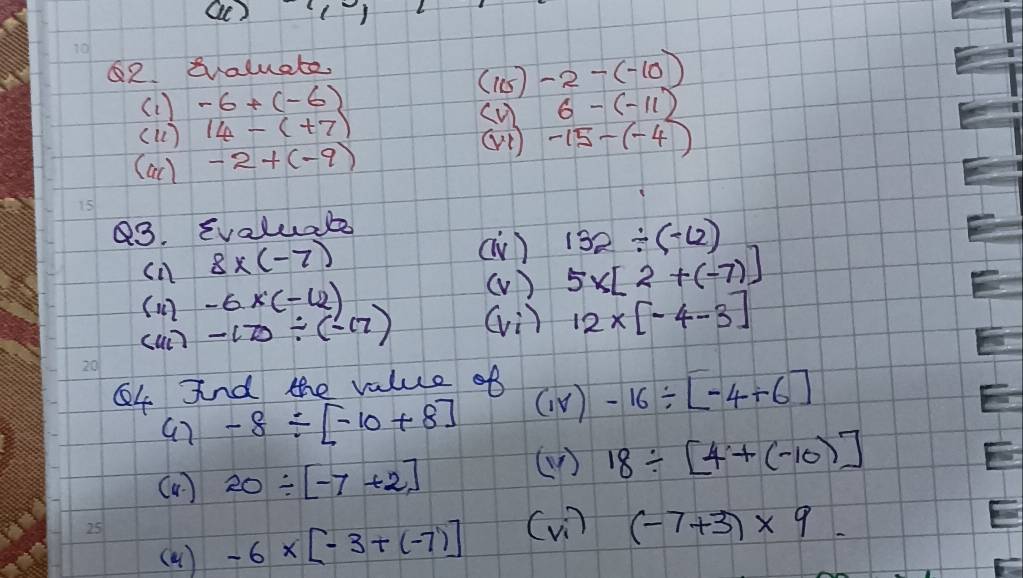 10
Q2. Evaluate
(i) -6 + (-6)
(ii) 14 - (+7)
(iii) -2 + (-9)
(iv) -2 - (-10)
(v) 6 - (-11)
(vi) -15 - (-4)
15
Q3. Evaluate
(i) 8 × (-7)
(ii) -6 × (-12)
(iii) -170 ÷ (-17)
(iv) 132 ÷ (-12)
(v) 5 × [2 + (-7)]
(vi) 12 × [-4-3]
20
Q4 Find the value of
(i) -8 ÷ [-10 + 8]
(ii) 20 ÷ [-7 + 2]
(iii) -6 × [-3 + (-7)]
(iv) -16 ÷ [-4+6]
(v) 18 ÷ [4 + (-10)]
(vi) (-7+3) × 9.
25